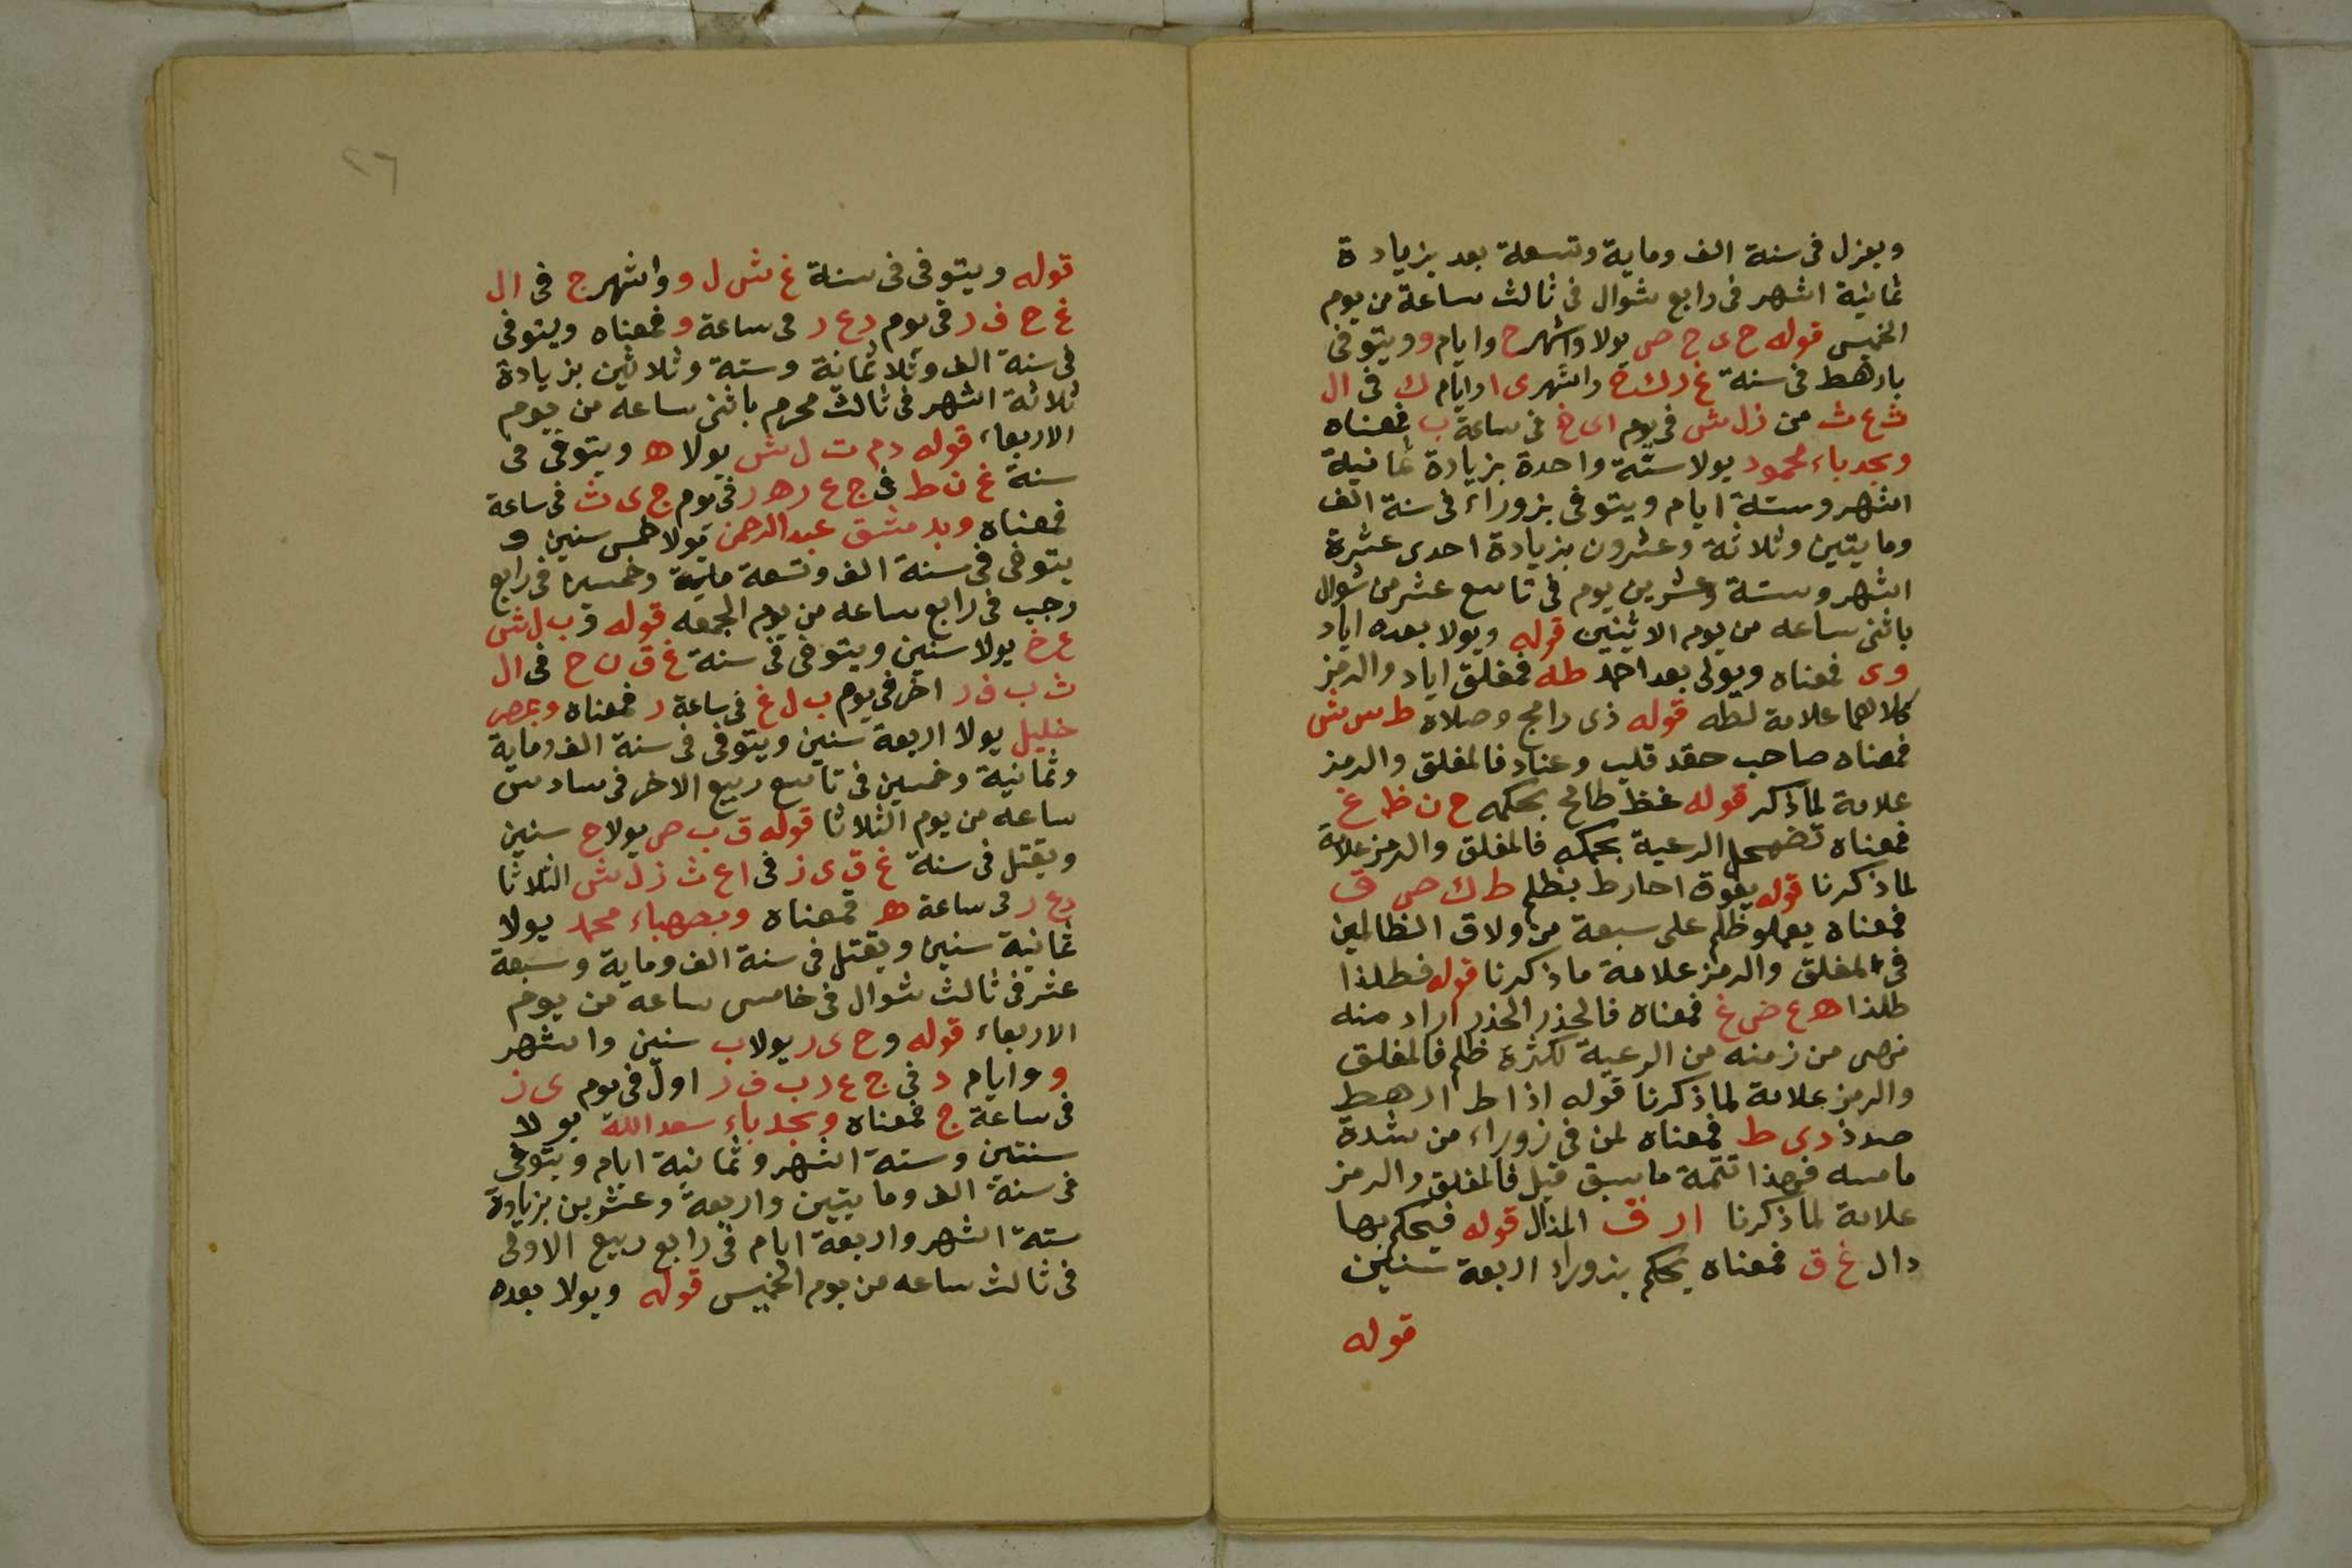 ويعزل فى سنة الف وماية وتسعة بعد بزيادة
ثمانية اشهر فى رابع شوال فى ثالث ساعة من يوم
الخميس قوله ح ى ج ص يولا واشهر ح وايام و ويتوفى
بارهط فى سنة غ ر ك ج واشهر ى ا وايام ك فى ال
ث ع ث من ز ل ش فى يوم ا ى خ فى ساعة ب فمعناه
وبجد باء محمود يولا ستة واحدة بزيادة ثمانية
اشهر وستة ايام ويتوفى بزوراء فى سنة الف
ومايتين وثلاثة وعشرون بزيادة احدى عشرة
اشهر وستة وعشرين يوم فى تاسع عشر من شوال
باثنى ساعه من يوم الاثنين قوله ويولا بعده اياد
وى فمعناه ويولى بعد احمد طه فمغلق اياد والرمز
كلاهما علامة لطه قوله ذى رامج وصلاه ط س ش
فمعناه صاحب حقد قلب وعناد فالمغلق والرمز
علامة لما ذكر قوله غظ طامح بحكمه ح ن ظ غ
فمعناه تضمحل الرعية بحكمه فالمغلق والرمز علامة
لما ذكرنا قوله يقوة احارط بظلم ط ك ص ق
فمعناه يعملو ظلم على سبعة من ولاق الظالمين
فى المغلق والرمز علامة ما ذكرنا قوله فطلذا
طلذا ه ع ض غ فمعناه فالحذر الحذر اراد منه
من زمنه من الرعية لكثرة ظلم فالمغلق
والرمز علامة لما ذكرنا قوله اذا ط ارهط
صدذ د ى ط فمعناه لمن فى زوراء من شدة
مامسه فهذا تتمة ما سبق قبل فالمغلق والرمز
علامة لما ذكرنا ا ر ف المذال قوله فيحكم بها
دال غ ق فمعناه يحكم بزوراء اربعة سنين
قوله
٢٦
قوله ويتوفى فى سنة غ ش ل و واشهر ج فى ال
غ ح ف ر فى يوم د ع ر فى ساعة و فمعناه ويتوفى
فى سنة الف وثلاثمانة وستة وثلاثين بزيادة
ثلاثة اشهر فى ثالث محرم باثنى ساعه من يوم
الاربعاء قوله د م ت ل ش يولا ه ويتوفى فى
سنة غ ن ط فى ج ع ر ه ر فى يوم ج ى ث فى ساعة
فمعناه وبدمشق عبد الرحمن يولا خمس سنين و
يتوفى فى سنة الف وتسعة ماية وخمسين فى رابع
رجب فى رابع ساعه من يوم الجمعه قوله و ب ل ش
ع خ يولا سنين ويتوفى فى سنة غ ق ن ح فى ال
ث ب ف ر اخر فى يوم ب ل غ فى ساعة ر فمعناه وبمصر
خليل يولا اربعة سنين ويتوفى فى سنة الف وماية
وثمانية وخمسين فى تاسع ربيع الاخر فى سادس
ساعه من يوم الثلاثا قوله ق ب ص يولا ح سنين
ويقتل فى سنة غ ق ى ز فى ا ع ث ز ل ش الثلاثا
د ع ر فى ساعة ه فمعناه وبصهباء محمد يولا
ثمانية سنين ويقتل فى سنة الف وماية وسبعة
عشر فى ثالث شوال فى خامس ساعه من يوم
الاربعاء قوله و ح ى ر يولا ب سنين واشهر
و وايام د فى ج ع ر ب ف ر اول فى يوم ى ز
فى ساعة ج فمعناه وبجد باء سعد الله يولا
سنتين وستة اشهر وثمانية ايام ويتوفى
فى سنة الف ومايتين واربعة وعشرين بزيادة
ستة اشهر واربعة ايام فى رابع ربيع الاولى
فى ثالث ساعه من يوم الخميس قوله ويولا بعده